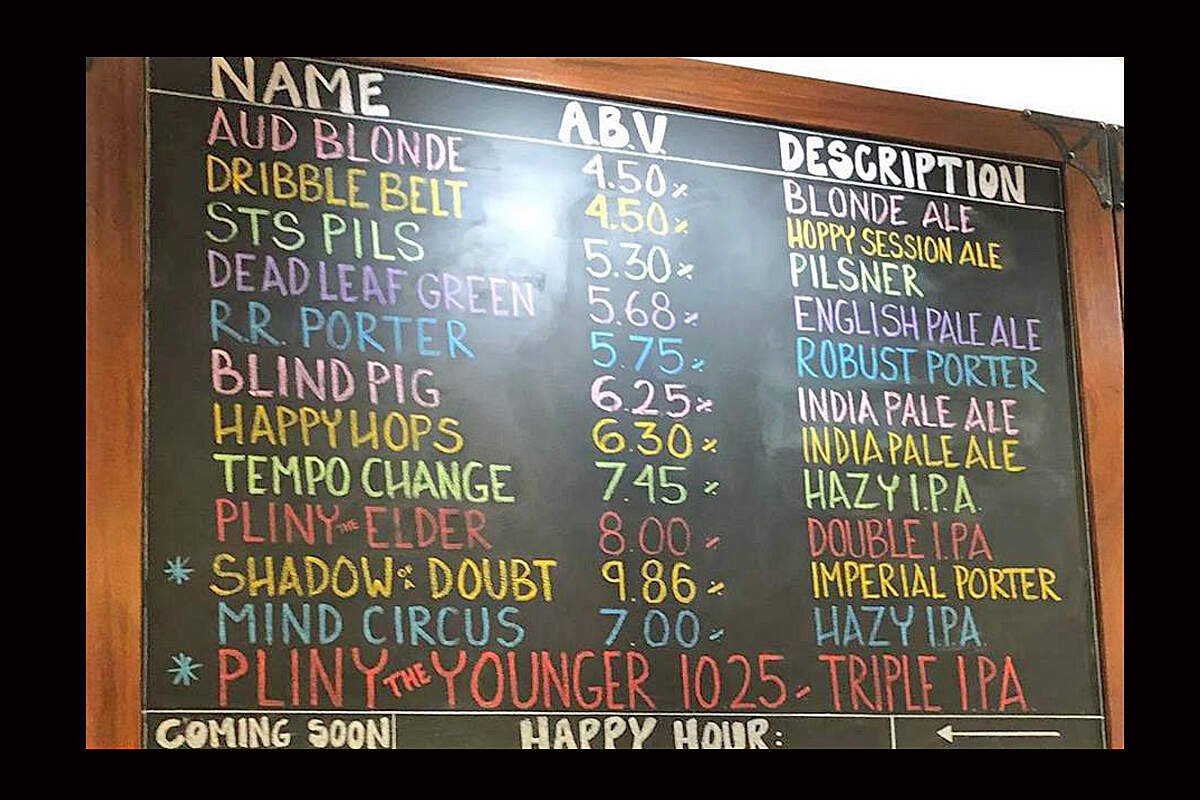 NAME A.B.V. DESCRIPTION
AUD BLONDE 4.50% BLONDE ALE
DRIBBLE BELT 4.50% HOPPY SESSION ALE
STS PILS 5.30% PILSNER
DEAD LEAF GREEN 5.68% ENGLISH PALE ALE
R.R. PORTER 5.75% ROBUST PORTER
BLIND PIG 6.25% INDIA PALE ALE
HAPPY HOPS 6.30% INDIA PALE ALE
TEMPO CHANGE 7.45% HAZY I.P.A.
PLINY THE ELDER 8.00% DOUBLE I.P.A.
* SHADOW OF A DOUBT 9.86% IMPERIAL PORTER
MIND CIRCUS 7.00% HAZY I.P.A.
* PLINY THE YOUNGER 1025% TRIPLE I.P.A.
COMING SOON HAPPY HOUR: ←